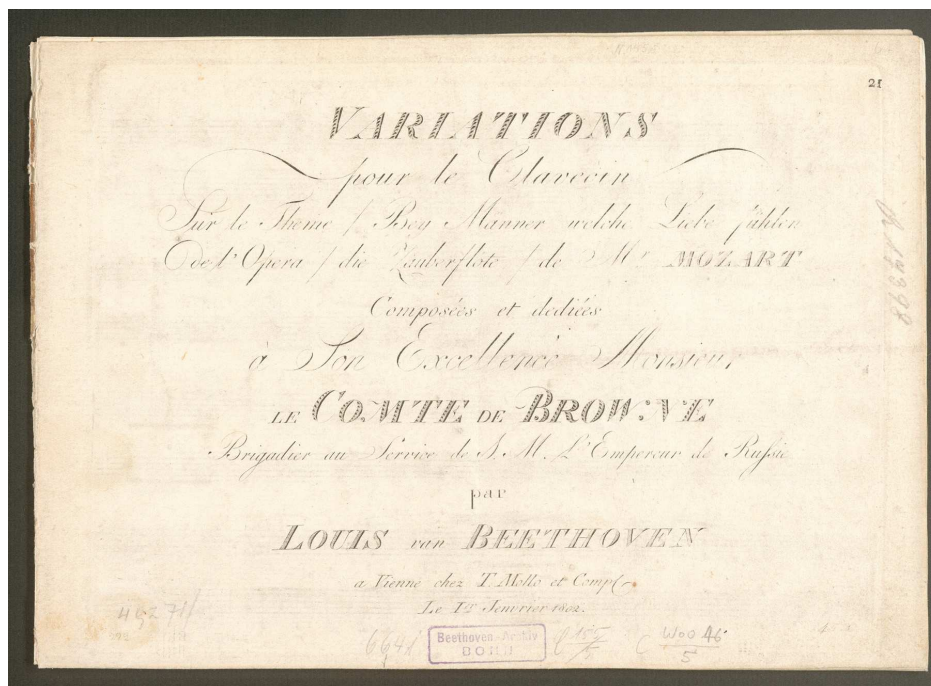 21
VARIATIONS
pour le Clavecin
Sur le Thême / Bey Männer welche Liebe fühlen
de l'Opera / die Zauberflöte / de Mr MOZART
Composées et dediées
à Son Excellence Monsieur
LE COMTE DE BROWNE
Brigadier au Service de S. M. L'Empereur de Russie
par
LOUIS van BEETHOVEN
a Vienne chez T. Mollo et Comp
Le 1er Jenvrier 1802.
Beethoven-Archiv
BONN
C 155/5
C WoO 46/5